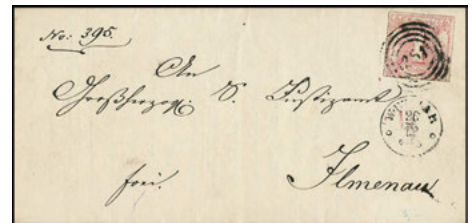 No: 395.
An
Großherzogl: S. Justizamt
frei.
Ilmenau